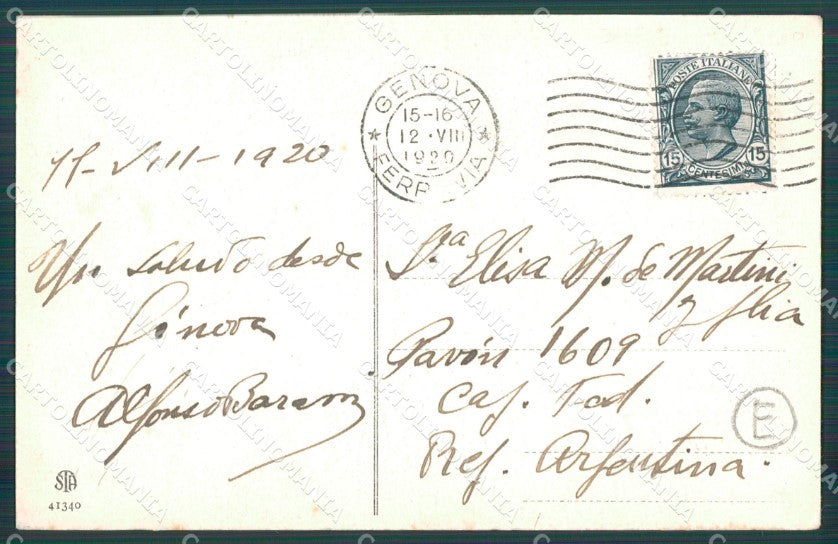 11-VIII-1920
Un saludo desde
Génova
Alfonso
STA
41340
GENOVA
15-16
12·VIII
1920
FERROVIA
POSTE ITALIANE
15 15
CENTESIMI
Sra Elisa M. de Martini
y flia
Pavón 1609
Cap. Fed.
Rep. Argentina.
E
CARTOLINOMANIA